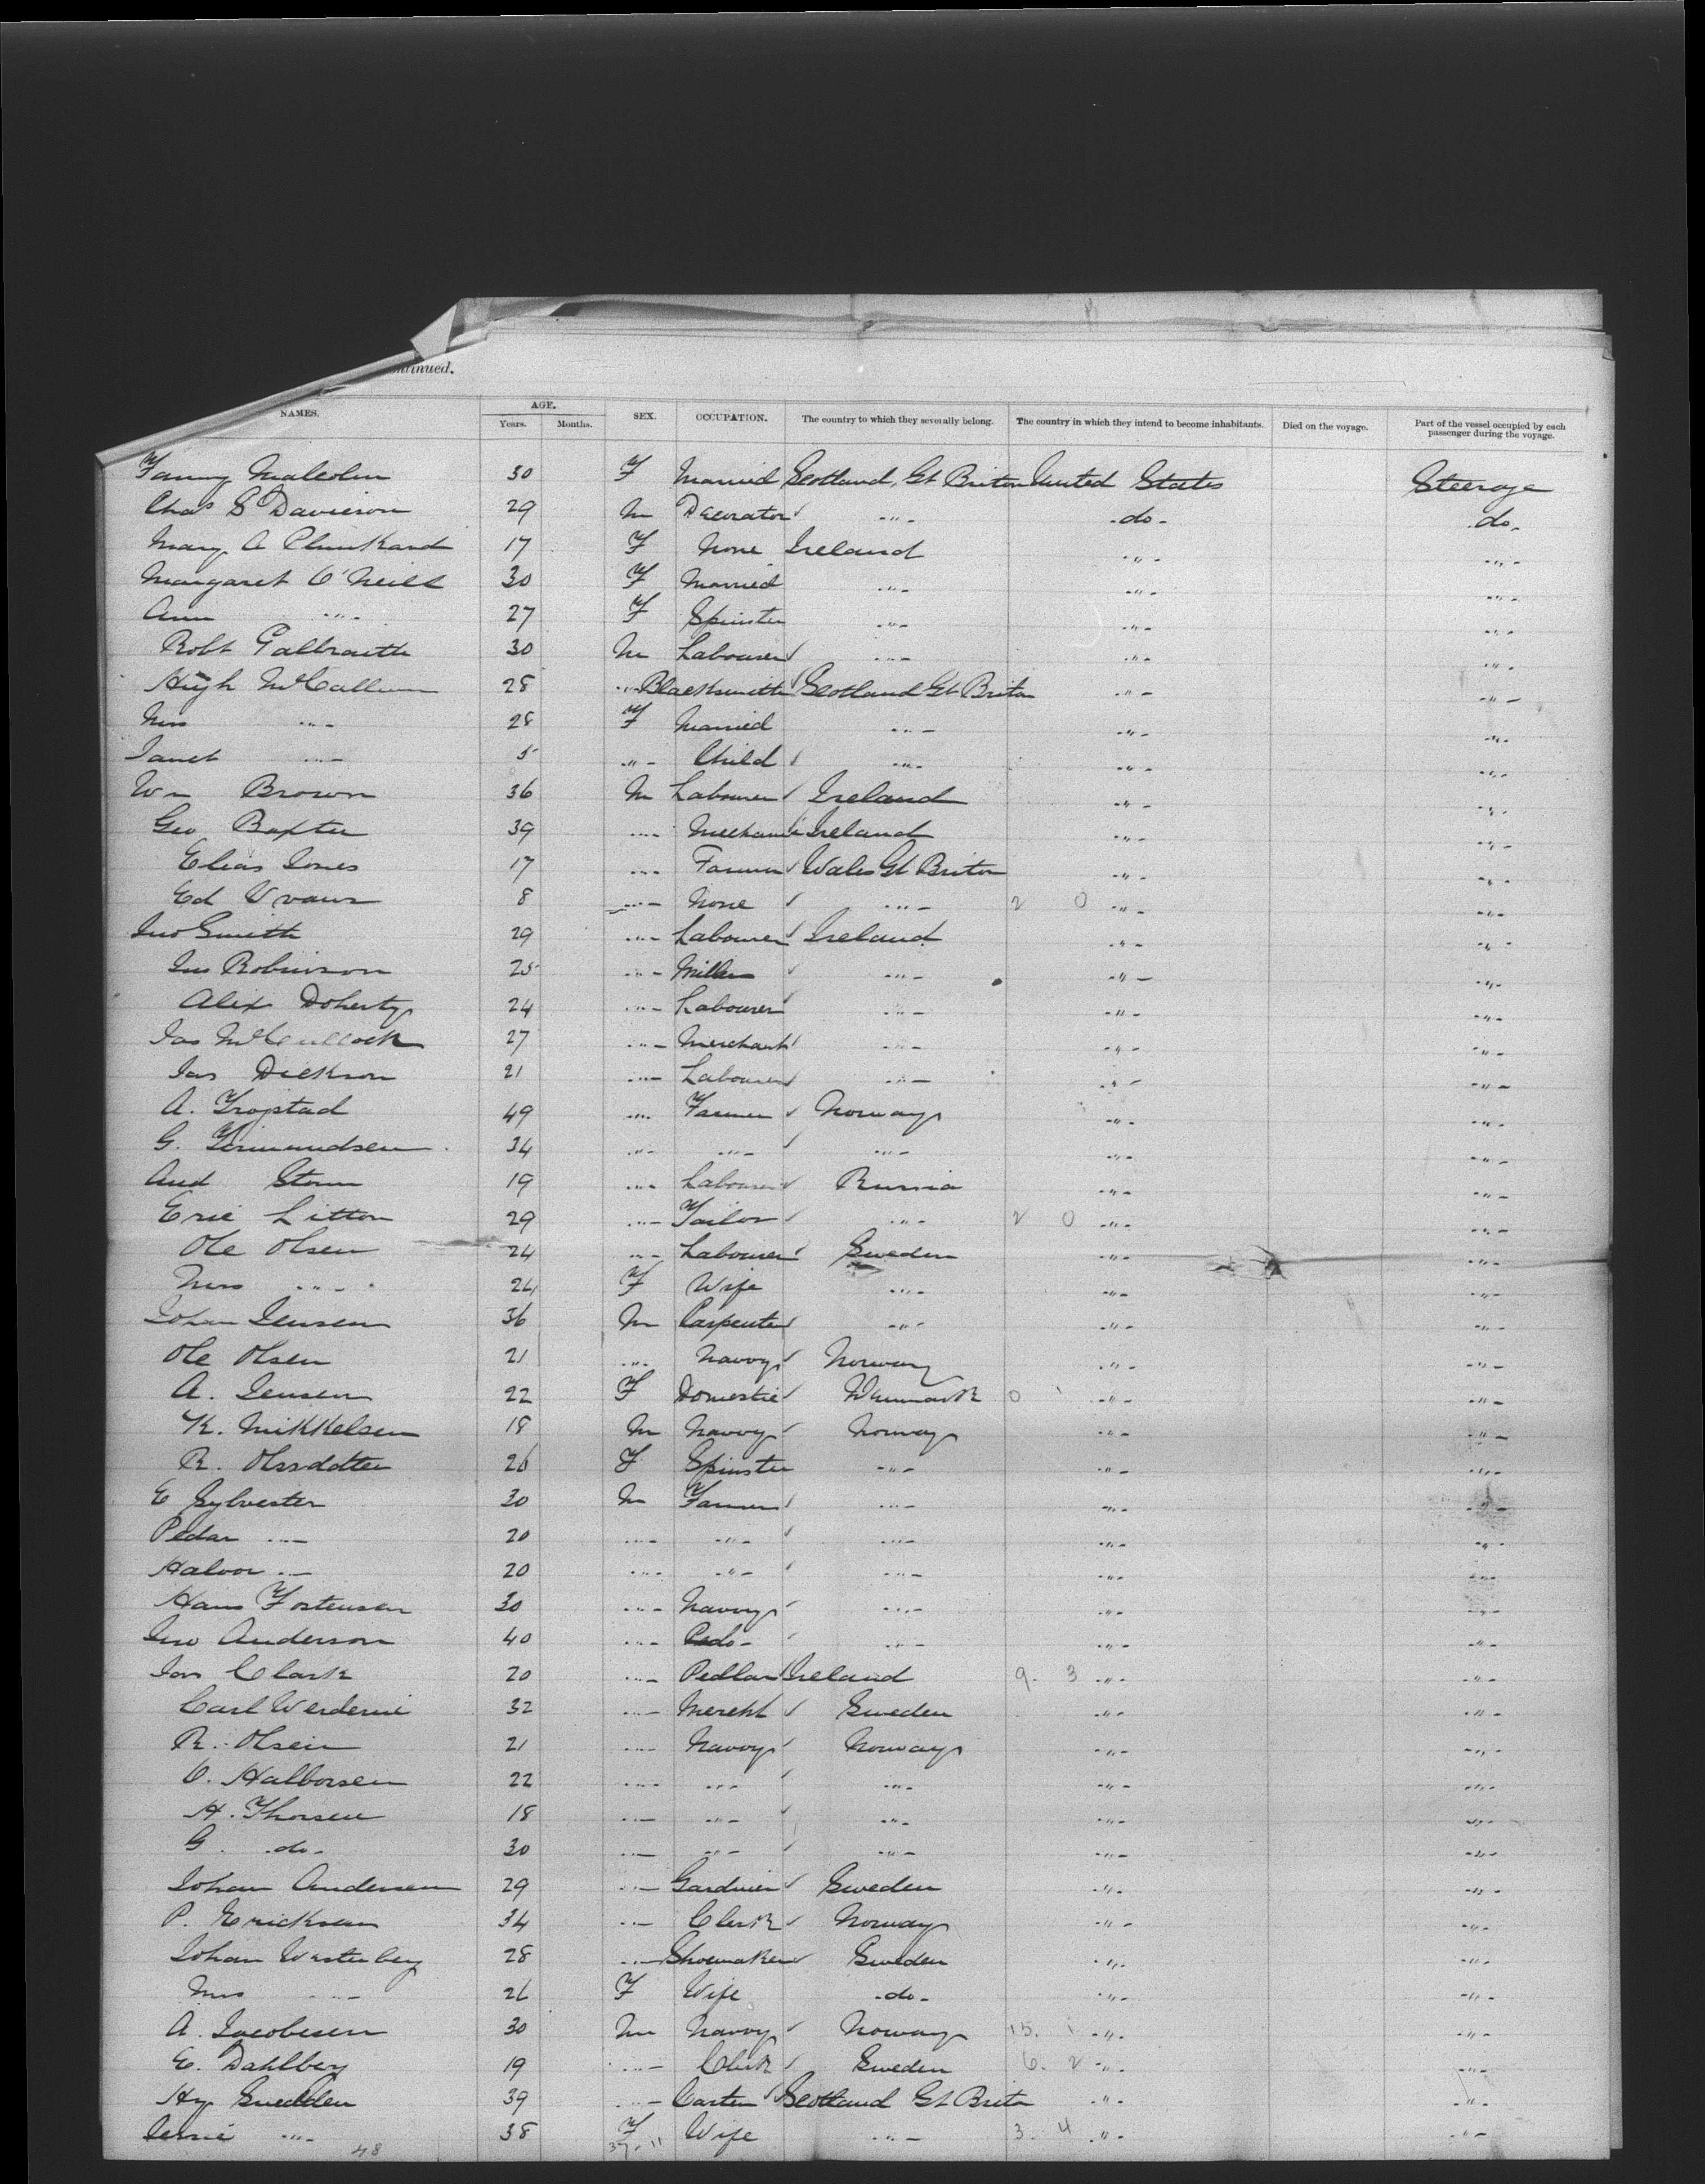 ontinued.
NAMES. AGE. Years. Months. SEX. OCCUPATION. The country to which they severally belong. The country in which they intend to become inhabitants. Died on the voyage. Part of the vessel occupied by each passenger during the voyage.
Fanny Malcolm 30 F Married Scotland, Gt Briton United States Steerage
Chas S Davieson 29 M Decorator " do - do -
Mary A Plunkard 17 F None Ireland " "
Margaret O'Neill 30 F Married " " "
Ann " 27 F Spinster " " "
Robt Galbraith 30 M Labourer " " "
Hugh McCallum 28 " Blacksmith Scotland Gt Briton " "
Mrs " 28 F Married " " "
Janet " 5 " Child " " "
Wm Brown 36 M Labourer Ireland " "
Geo Baxter 39 " Mechanic Ireland " "
Elias Jones 17 " Farmer Wales Gt Briton " "
Ed Evans 8 " None " 2 0 " "
Jno Smith 29 " Labourer Ireland " "
Jas Robinson 25 " Miller " " "
Alex Doherty 24 " Labourer " " "
Jas McCullock 27 " Merchant " " "
Jas Dickson 21 " Labourer " " "
A. Trogstad 49 " Farmer Norway " "
G. 34 " " " " "
And Storm 19 " Labourer Russia " "
Eric Litton 29 " Tailor " 2 0 " "
Ole Olsen 24 " Labourer Sweden " "
Mrs " 24 F Wife " " "
Johan Jensen 36 M Carpenter " " "
Ole Olsen 21 " Navvy Norway " "
A. Jensen 22 F Domestic Denmark 0 1 " "
K. Mikkelsen 18 M Navvy Norway " "
R. Olssdotter 26 F Spinster " " "
E Sylvester 30 M Farmer " " "
Pedar " 20 " " " " "
Halvor " 20 " " " " "
Hans Tostensen 30 " Navvy " " "
Jno Anderson 40 " do - " " "
Jas Clark 20 " Pedlar Ireland 9. 3 " "
Carl Werdenie 32 " Mercht Sweden " "
R. Olsen 21 " Navvy Norway " "
O. Halborsen 22 " " " " "
H. Thorsen 18 " " " " "
G. do - 30 " " " " "
Johan Andersen 29 " Gardiner Sweden " "
P. Ericksen 34 " Clerk Norway " "
Johan Westerberg 28 " Shoemaker Sweden " "
Mrs " 26 F Wife do - " "
A. Jacobsen 30 M Navvy Norway 15. 1 " "
E. Dahlberg 19 " Clerk Sweden 6. 2 " "
Hy Snedden 39 " Carter Scotland Gt Briton " "
Jessie " 38 F Wife " 3. 4 " "
48 37-11